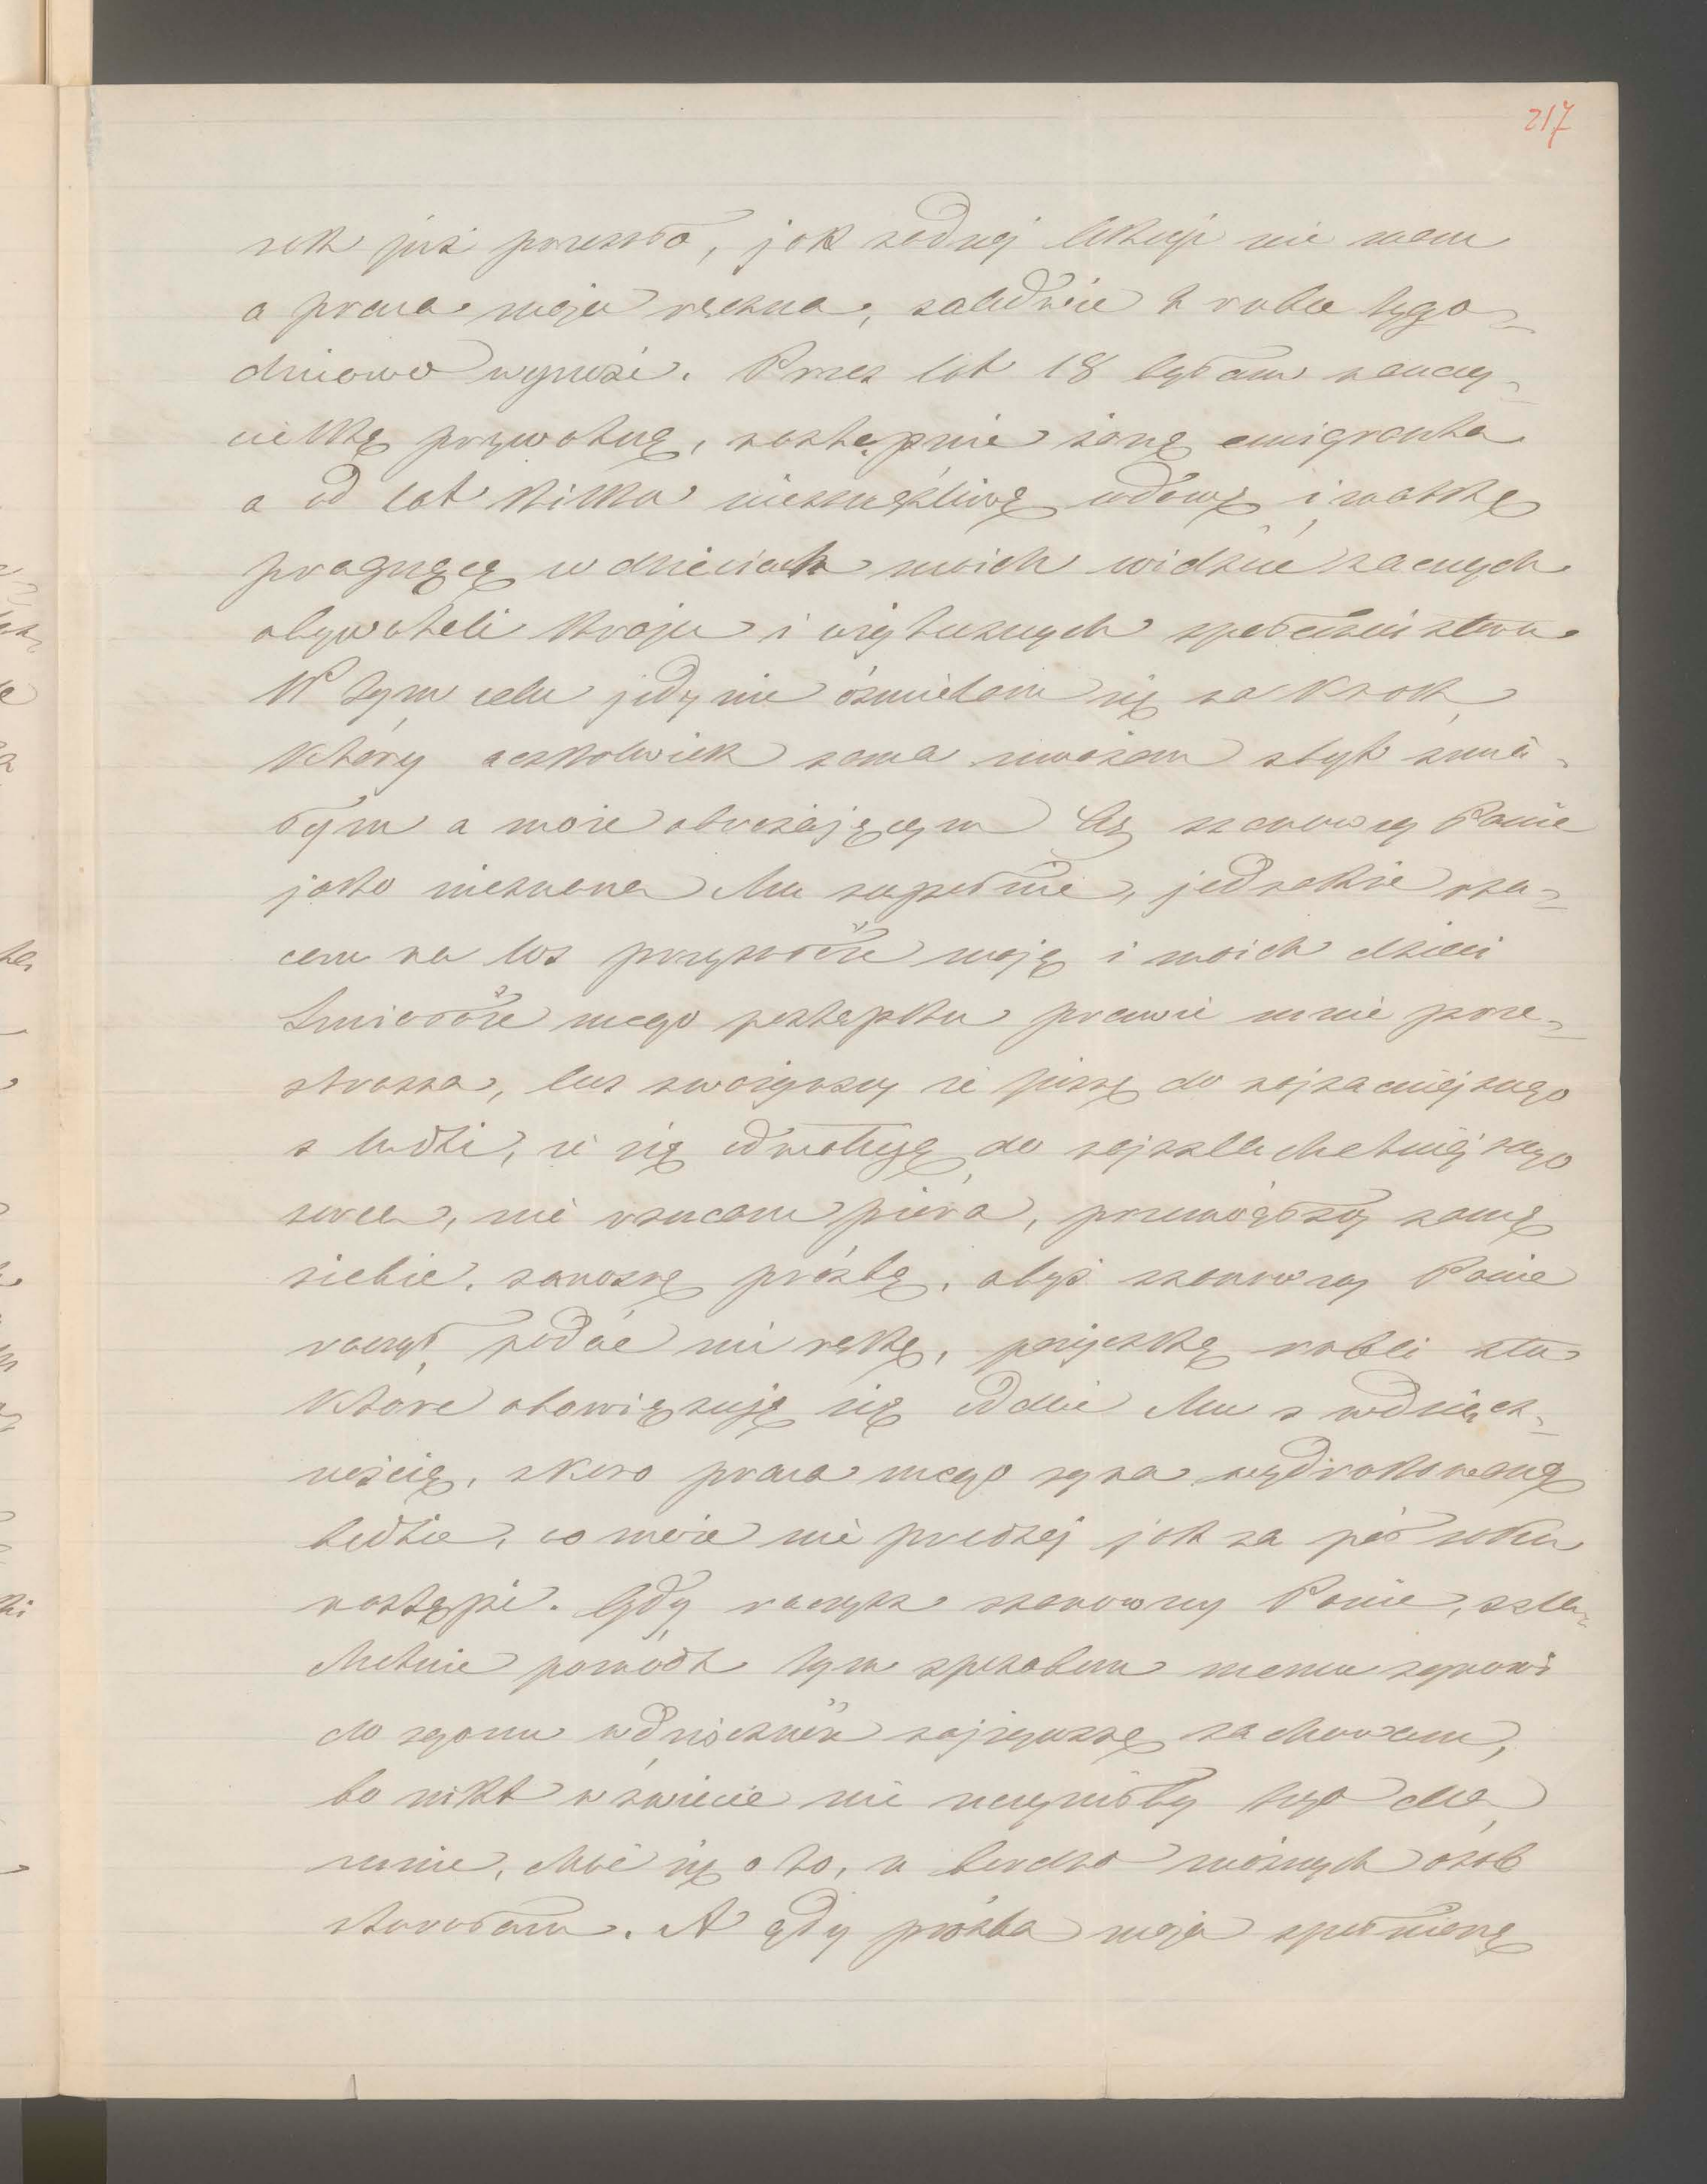 217
rok już przeszło, jak żadnej lekcyi nie mam
a praca moja ręczna, zaledwie 2 ruble tygo-
dniowo wynosi. Przez lat 18 byłam nauczy-
cielką prywatną, następnie żoną emigranta
a od lat kilku nieszczęśliwą wdową i matką
pragnącą w dzieciach moich widzieć zacnych
obywateli kraju i użytecznych społeczeństwu.
W tym celu jedynie ośmielam się na krok
który aczkolwiek sama uważam zbyt śmia-
łym a może obrażającym Cię szanowny Panie
jako nieznana Mu zupełnie, jednakże rzu-
cam na los przyszłość moją i moich dzieci
Śmiałość mego postępku prawie mnie prze-
strasza, lecz zważywszy że piszę do najzacniejszego
z ludzi, że się odwołuję do najszlachetniejszego
serca, nie rzucam pióra, przemógłszy samą
siebie, zanoszę prośbę, abyś szanowny Panie
raczył podać mi rękę, pożyczkę rubli sto
które obowiązuję się oddać Mu z wdzięcz-
nością, skoro praca mego syna wydrukowaną
będzie, co może nie prędzej jak za pół roku
nastąpi. Gdy raczysz szanowny Panie, szla-
chetnie pomódz tym sposobem memu synowi
do zgonu wdzięczność najżywszą zachowam,
bo nikt w świecie nie uczyniłby tego dla
mnie, choć się o to, u bardzo możnych osób
starałam. A gdy prośba moja spełnioną